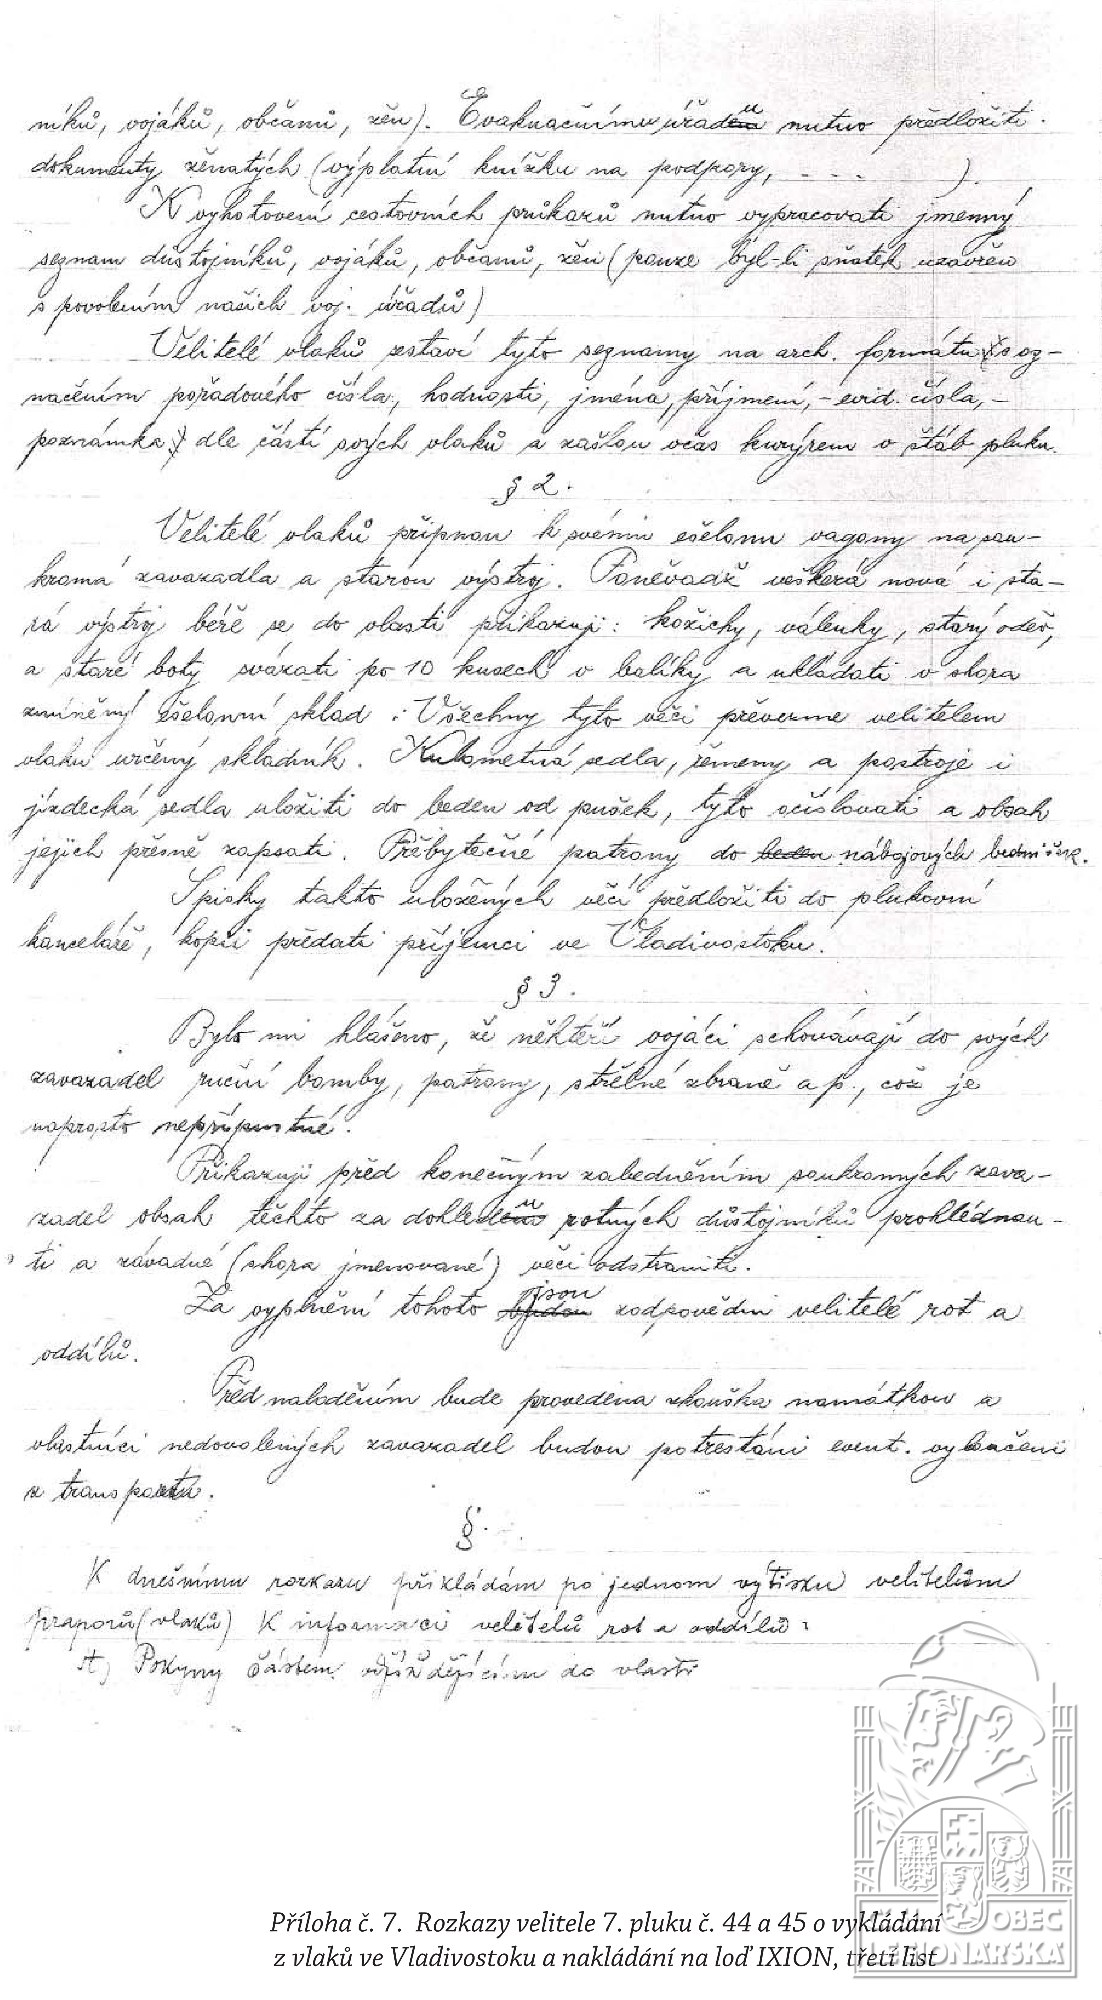 níků, vojáků, občanů, žen). Evakuačnímu úřadu nutno předložiti
dokumenty ženatých (výplatní knížku na podpory, - - - ).
K vyhotovení cestovních průkazů nutno vypracovati jmenný
seznam důstojníků, vojáků, občanů, žen (pouze byl-li sňatek uzavřen
s povolením našich voj. úřadů)
Velitelé vlaků sestaví tyto seznamy na arch. formátu (s oz-
načením pořadového čísla, hodnosti, jména, příjmení, - evid. čísla, -
poznámka) dle částí svých vlaků a zašlou včas kurýrem v štáb pluku.
§ 2.
Velitelé vlaků připnou k svému ešelonu vagony na sou-
kromá zavazadla a starou výstroj. Poněvadž veškerá nová i sta-
rá výstroj béře se do vlasti přikazuji: kožichy, válenky, starý oděv,
a staré boty svázati po 10 kusech v balíky a ukládati v shora
zmíněný ešelonní sklad. Všechny tyto věci převezme velitelem
vlaku určený skladník. Kulometná sedla, řemeny a postroje i
jízdecká sedla uložiti do beden od pušek, tyto očíslovati a obsah
jejich přesně zapsati. Přebytečné patrony do beden nábojových bedniček.
Spisky takto uložených věcí předložiti do plukovní
kanceláře, kopii předati příjemci ve Vladivostoku.
§ 3.
Bylo mi hlášeno, že někteří vojáci schovávají do svých
zavazadel ruční bomby, patrony, střelné zbraně a p., což je
naprosto nepřípustné.
Přikazuji před konečným zabedněním soukromých zava-
zadel obsah těchto za dohledu rotných důstojníků prohlédnou-
ti a závadné (shora jmenované) věci odstraniti.
Za vyplnění tohoto budou jsou zodpovědni velitelé rot a
oddílů.
Před naloděním bude provedena zkouška namátkou a
vlastníci nedovolených zavazadel budou potrestáni event. vyloučeni
z transportu.
§.
K dnešnímu rozkazu přikládám po jednom výtisku velitelům
praporů (vlaků) K informaci velitelů rot a oddílů:
A) Pokyny částem odjíždějícím do vlasti
Příloha č. 7. Rozkazy velitele 7. pluku č. 44 a 45 o vykládání
z vlaků ve Vladivostoku a nakládání na loď IXION, třetí list
OBEC
LEGIONÁŘSKÁ